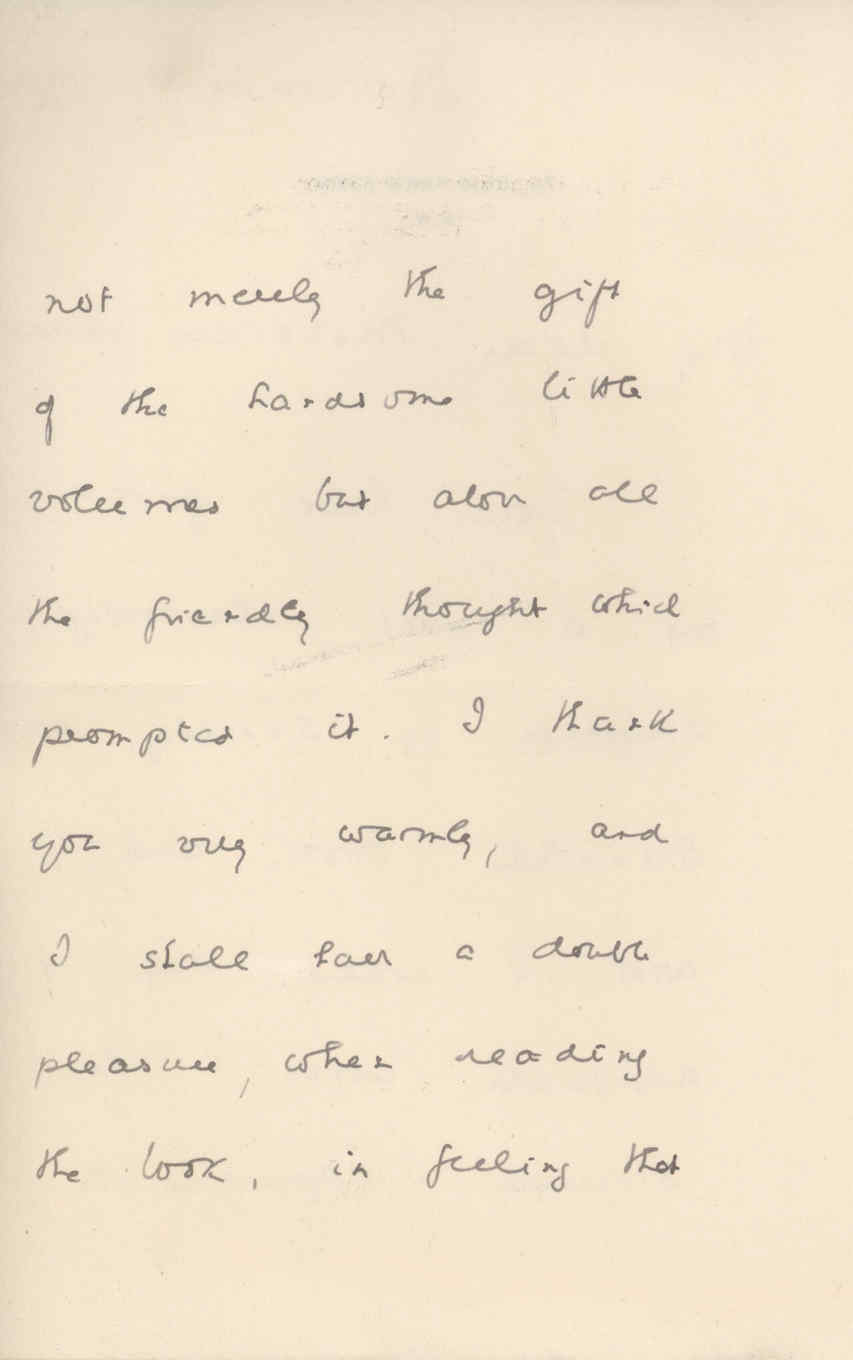 not merely the gift
of the handsome little
volumes but above all
the friendly thought which
prompted it. I thank
you very warmly, and
I shall have a double
pleasure, when reading
the book, in feeling that